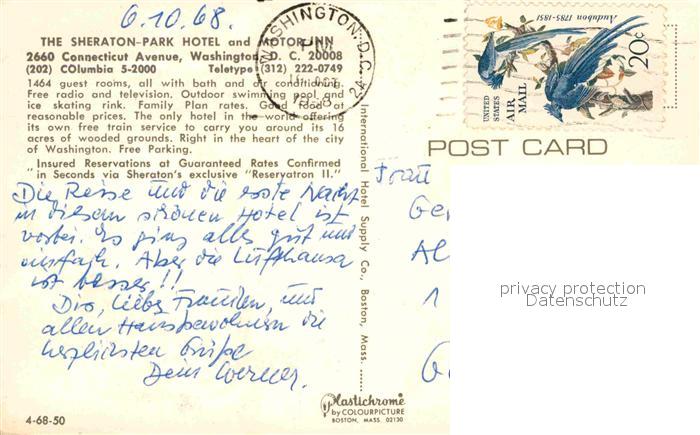 6.10.68.
THE SHERATON-PARK HOTEL and MOTOR INN
2660 Connecticut Avenue, Washington, D. C. 20008
(202) COlumbia 5-2000 Teletype (312) 222-0749
1464 guest rooms, all with bath and air conditioning.
Free radio and television. Outdoor swimming pool and
ice skating rink. Family Plan rates. Good food at
reasonable prices. The only hotel in the world offering
its own free train service to carry you around its 16
acres of wooded grounds. Right in the heart of the city
of Washington. Free Parking.
Insured Reservations at Guaranteed Rates Confirmed
in Seconds via Sheraton's exclusive "Reservatron II."
Die Reise und die erste Nacht
in diesem schönen Hotel ist
vorbei. Es ging alles gut und
einfach. Aber die Lufthansa
ist besser!!!
Dir, liebe Frauken, und
allen Hausbewohnern die
herzlichsten Grüße
Dein Werner.
4-68-50
Plastichrome
by COLOURPICTURE
BOSTON, MASS. 02130
International Hotel Supply Co., Boston, Mass.
WASHINGTON, D.C.
PM
1968
Audubon 1785-1851
UNITED STATES
AIR MAIL
20¢
POST CARD
Frau
Ge
Al
1
G
privacy protection
Datenschutz